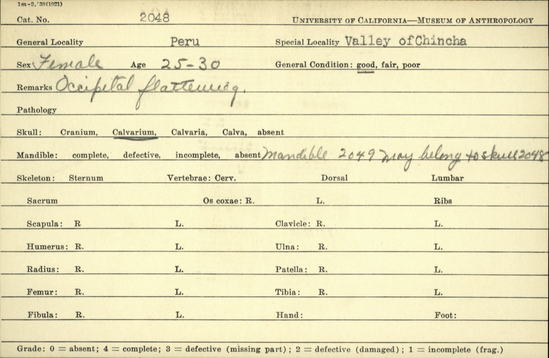 1m-2,'38(1921)
Cat. No. 2048 UNIVERSITY OF CALIFORNIA—MUSEUM OF ANTHROPOLOGY
General Locality Peru Special Locality Valley ofChincha
Sex Female Age 25-30 General Condition: good, fair, poor
Remarks Occipetal flattening.
Pathology
Skull: Cranium, Calvarium, Calvaria, Calva, absent
Mandible: complete, defective, incomplete, absent Mandible 2049 may belong to skull 2048
Skeleton: Sternum Vertebrae: Cerv. Dorsal Lumbar
Sacrum Os coxae: R. L. Ribs
Scapula: R L. Clavicle: R. L.
Humerus: R. L. Ulna: R. L.
Radius: R. L. Patella: R. L.
Femur: R. L. Tibia: R. L.
Fibula: R. L. Hand: Foot:
Grade: 0 = absent; 4 = complete; 3 = defective (missing part); 2 = defective (damaged); 1 = incomplete (frag.)